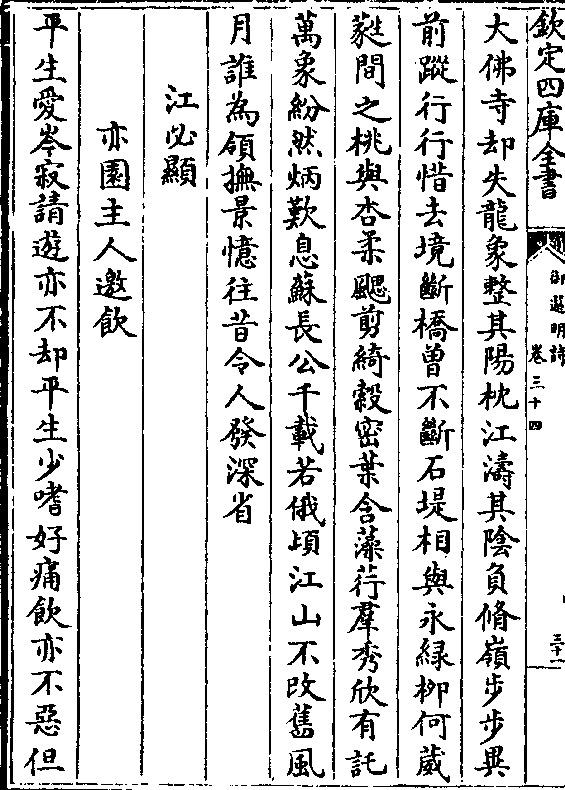 欽定四庫全書
御選明詩
卷三十四
三十一
大佛寺却失龍象整其陽枕江濤其陰負脩嶺步步異
前蹤行行惜去境斷橋曾不斷石堤相與永緑柳何葳
蕤間之桃與杏柔颸剪綺縠密葉含藻荇羣秀欣有託
萬象紛然炳歎息蘇長公千載若俄頃江山不改舊風
月誰為領撫景憶往昔令人發深省
江必顯
亦園主人邀飲
平生愛岑寂請遊亦不却平生少嗜好痛飲亦不惡但